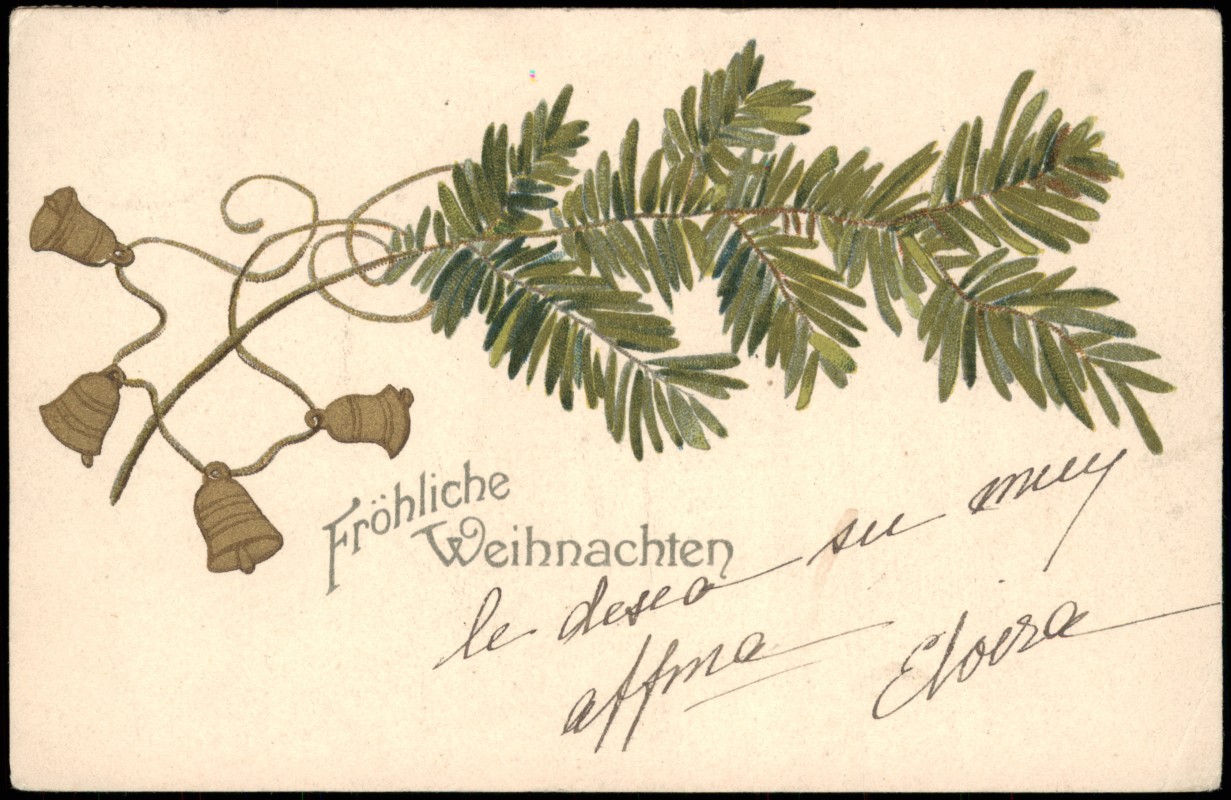 Fröhliche
Weihnachten
le desea su muy
affma Elvira